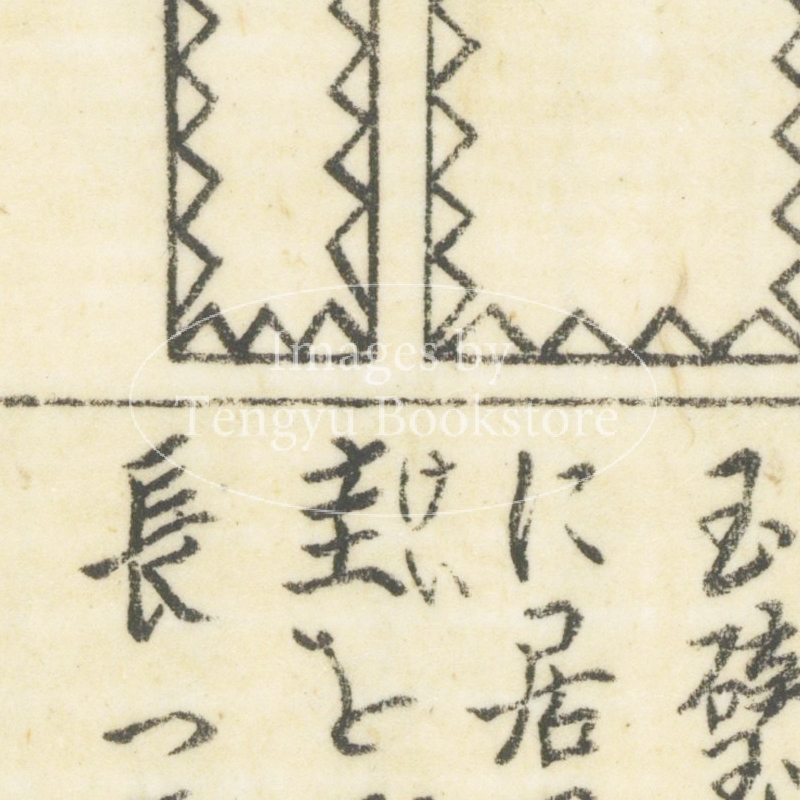 玉璧
に居
けい
圭と
長つ
Images by
Tengyu Bookstore